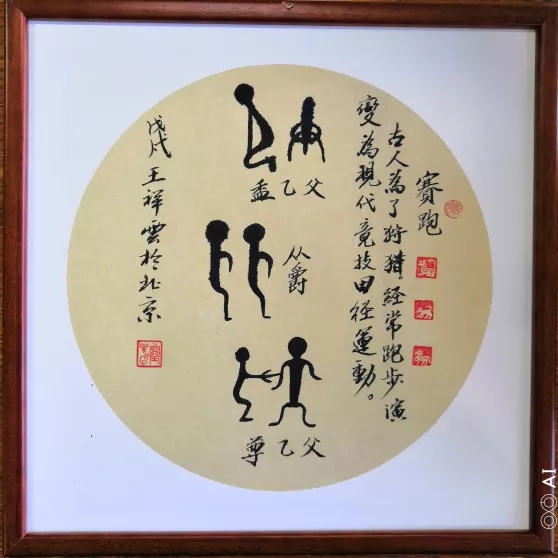 賽跑
古人為了狩猎。經常跑步演
變為現代竟技田径運動。
父乙盉
从爵
父乙尊
戊戌王祥雲於北京
AI